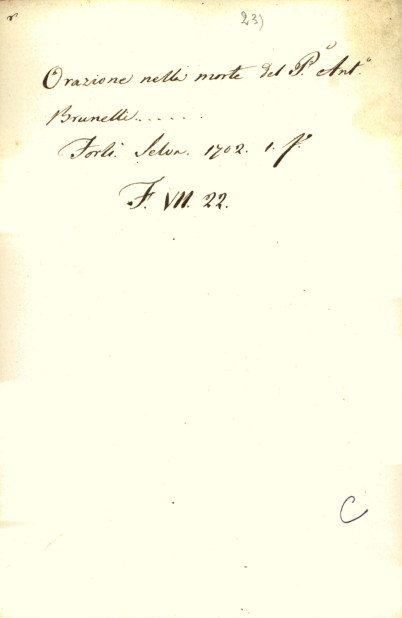 23)
Orazione nella morte del P.º Ant.º
Brunelli......
Forlì. Selva. 1702. 1. f.º
F. VII. 22.
C